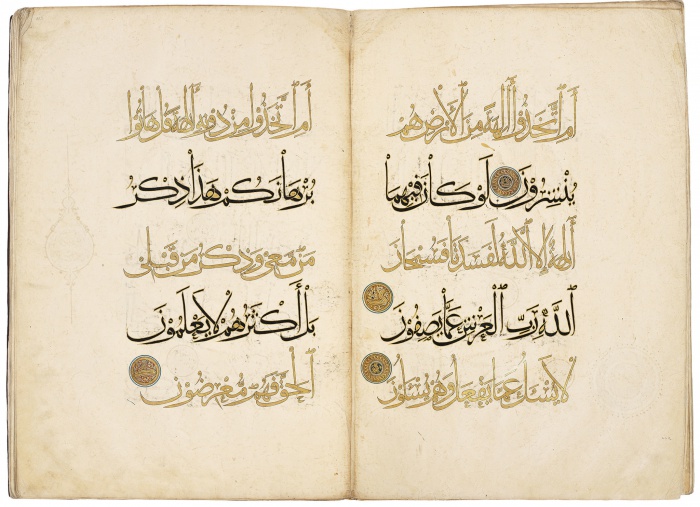 أَمِ ٱتَّخَذُوا آلِهَةً مِنَ الْأَرْضِ هُمْ
يُنْشِرُونَ لَوْ كَانَ فِيهِمَا
آلِهَةٌ إِلَّا اللَّهُ لَفَسَدَتَا فَسُبْحَانَ
اللَّهِ رَبِّ الْعَرْشِ عَمَّا يَصِفُونَ
لَا يُسْئَلُ عَمَّا يَفْعَلُ وَهُمْ يُسْئَلُونَ
أَمِ ٱتَّخَذُوا مِنْ دُونِهِ آلِهَةً قُلْ هَاتُوا
بُرْهَانَكُمْ هَذَا ذِكْرُ
مَنْ مَعِيَ وَذِكْرُ مَنْ قَبْلِي
بَلْ أَكْثَرُهُمْ لَا يَعْلَمُونَ
الْحَقَّ فَهُمْ مُعْرِضُونَ